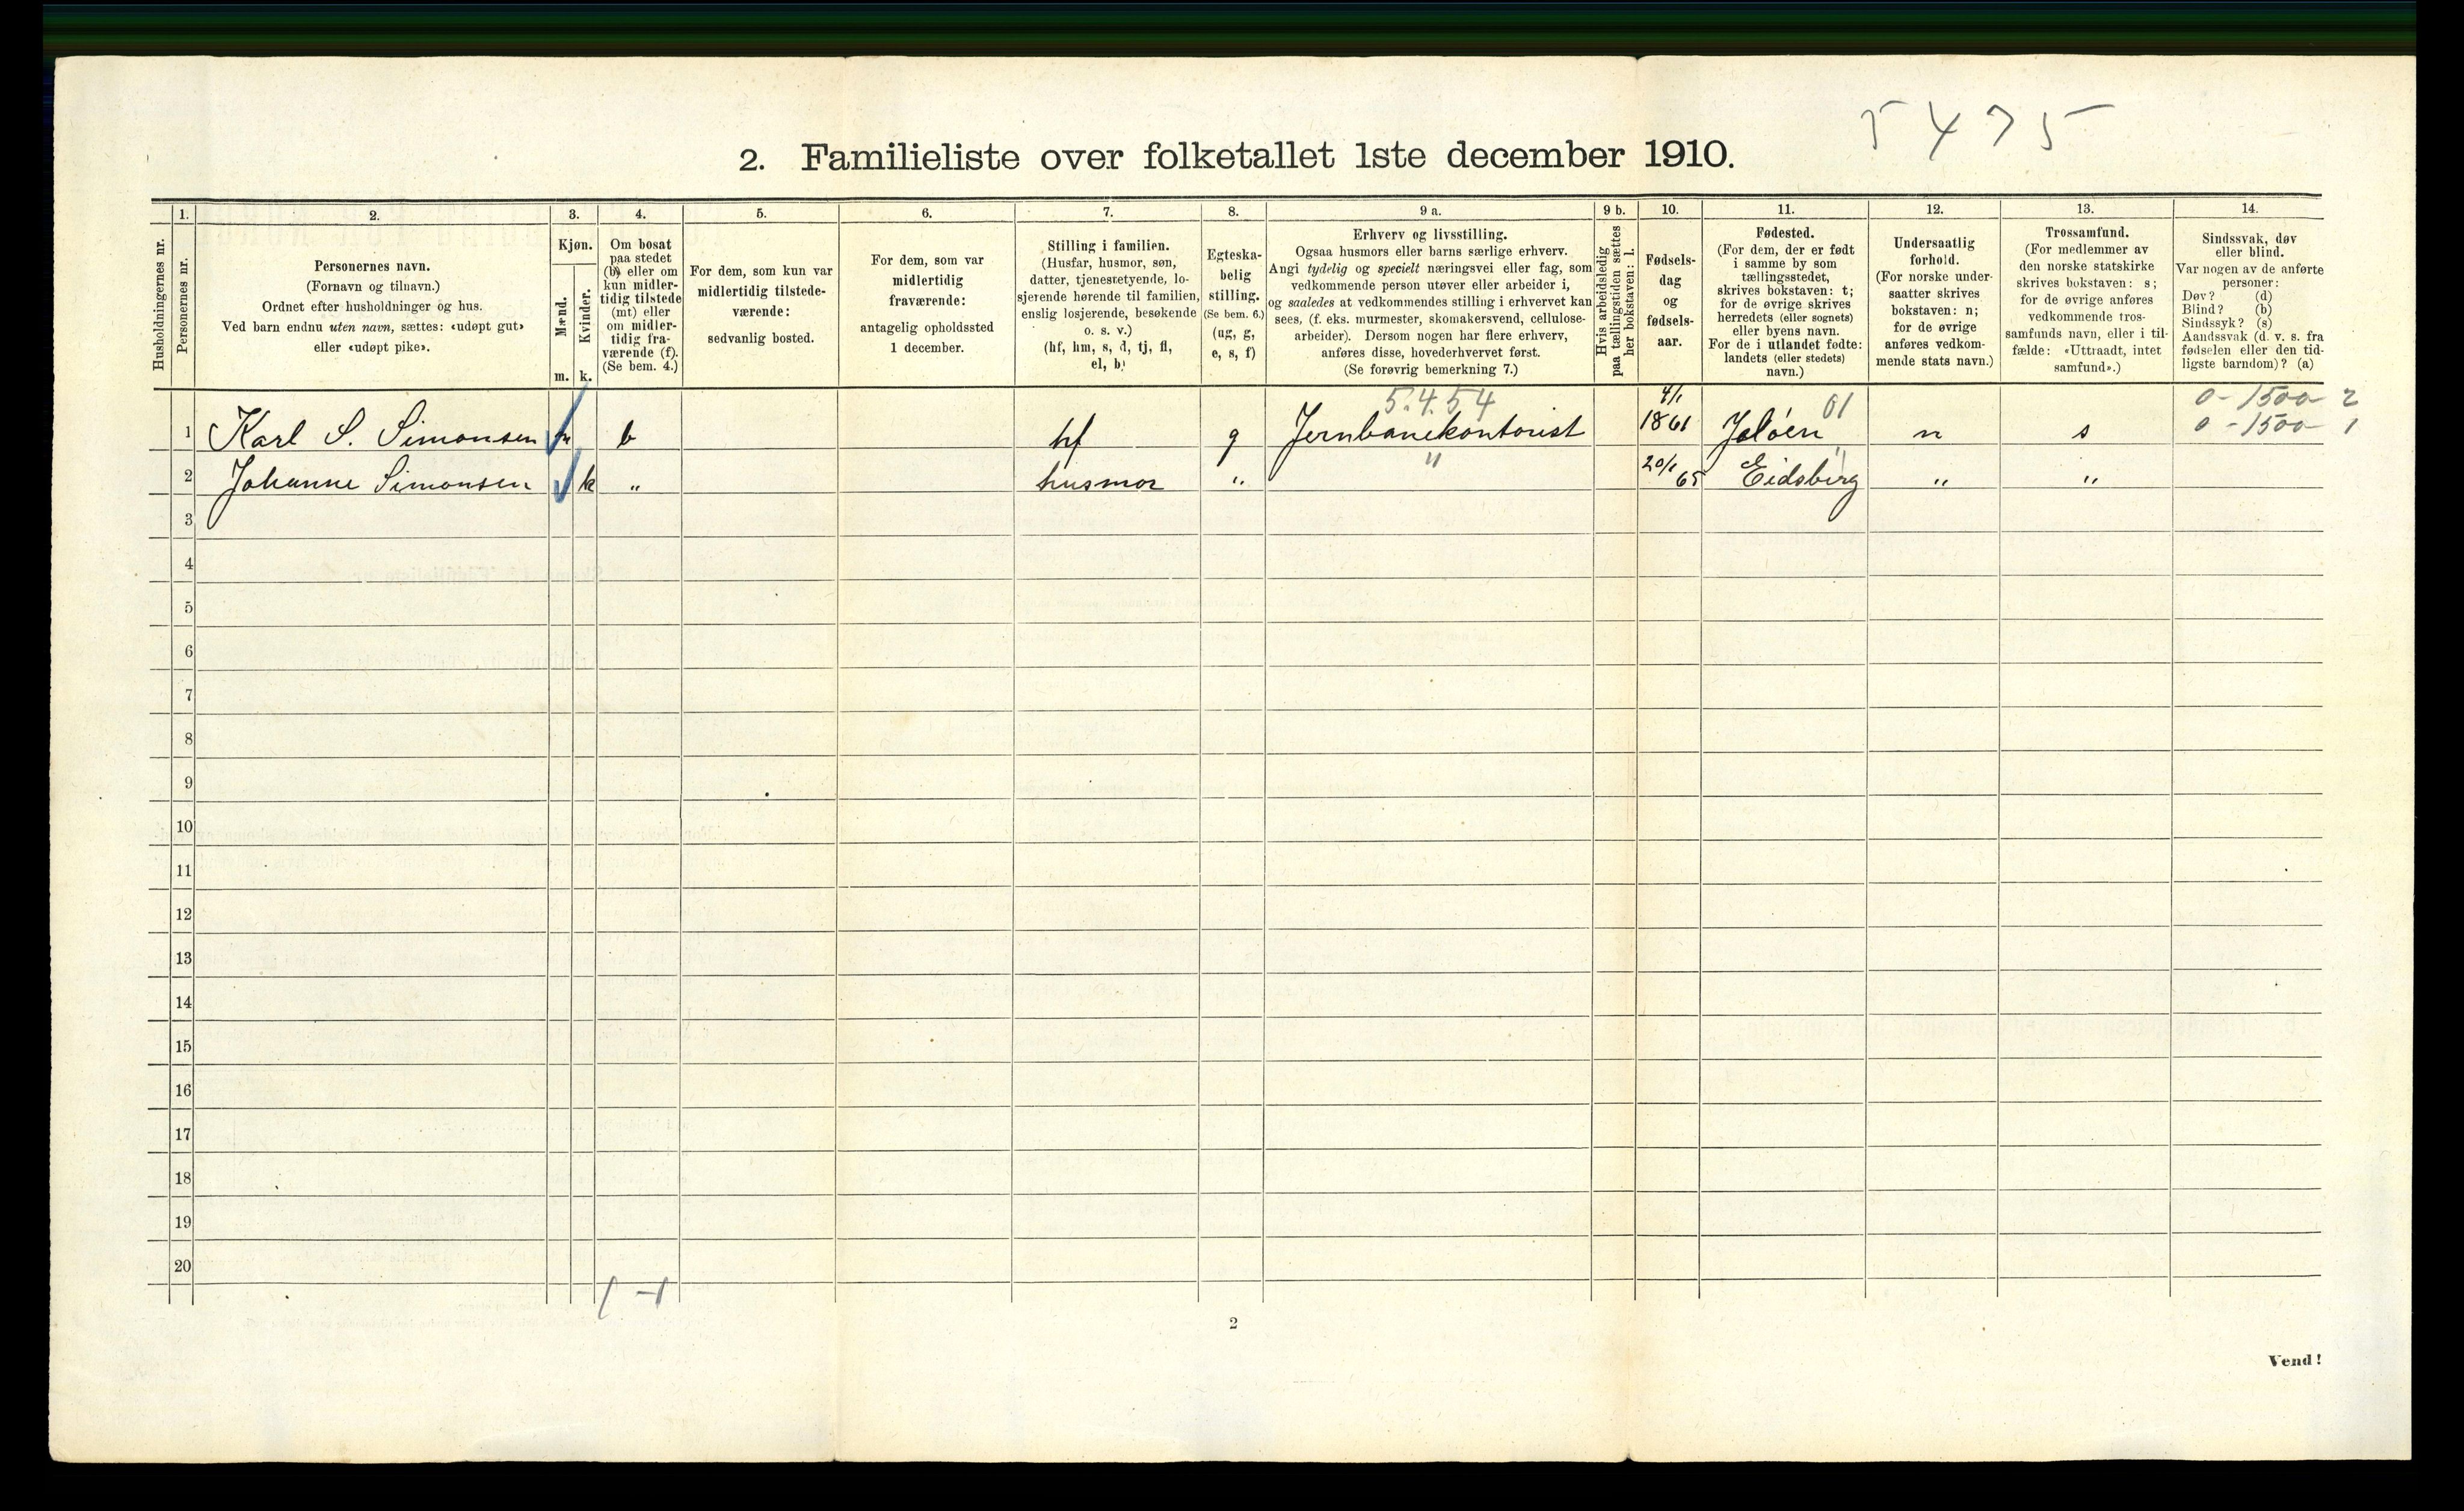 5475
2. Familieliste over folketallet 1ste december 1910.
1. 2. 3. 4. 5. 6. 7. 8. 9 a. 9 b. 10. 11. 12. 13. 14.
Husholdningernes nr.
Personernes nr.
Personernes navn.
(Fornavn og tilnavn.)
Ordnet efter husholdninger og hus.
Ved barn endnu uten navn, sættes: «udøpt gut»
eller «udøpt pike».
Kjøn.
Mænd.
Kvinder.
m. k.
Om bosat
paa stedet
(b) eller om
kun midler-
tidig tilstede
(mt) eller
om midler-
tidig fra-
værende (f).
(Se bem. 4.)
For dem, som kun var
midlertidig tilstede-
værende:
sedvanlig bosted.
For dem, som var
midlertidig
fraværende:
antagelig opholdssted
1 december.
Stilling i familien.
(Husfar, husmor, søn,
datter, tjenestetyende, lo-
sjerende hørende til familien,
enslig losjerende, besøkende
o. s. v.)
(hf, hm, s, d, tj, fl,
el, b)
Egteska-
belig
stilling.
(Se bem. 6.)
(ug, g,
e, s, f)
Erhverv og livsstilling.
Ogsaa husmors eller barns særlige erhverv.
Angi tydelig og specielt næringsvei eller fag, som
vedkommende person utøver eller arbeider i,
og saaledes at vedkommendes stilling i erhvervet kan
sees, (f. eks. murmester, skomakersvend, cellulose-
arbeider). Dersom nogen har flere erhverv,
anføres disse, hovederhvervet først.
(Se forøvrig bemerkning 7.)
Hvis arbeidsledig
paa tællingstiden sættes
her bokstaven: l.
Fødsels-
dag
og
fødsels-
aar.
Fødested.
(For dem, der er født
i samme by som
tællingsstedet,
skrives bokstaven: t;
for de øvrige skrives
herredets (eller sognets)
eller byens navn.
For de i utlandet fødte:
landets (eller stedets)
navn.)
Undersaatlig
forhold.
(For norske under-
saatter skrives
bokstaven: n;
for de øvrige
anføres vedkom-
mende stats navn.)
Trossamfund.
(For medlemmer av
den norske statskirke
skrives bokstaven: s;
for de øvrige anføres
vedkommende tros-
samfunds navn, eller i til-
fælde: «Uttraadt, intet
samfund».)
Sindssvak, døv
eller blind.
Var nogen av de anførte
personer:
Døv? (d)
Blind? (b)
Sindssyk? (s)
Aandssvak (d. v. s. fra
fødselen eller den tid-
ligste barndom)? (a)
5.4.54 4/1 01 0-1500-2
1 Karl S. Simonsen m b hf g Jernbanekontorist 1861 Jeløen n s 0-1500-1
" 20/1 "
2 Johanne Simonsen k " husmor " 65 Eidsberg " "
3
4
5
6
7
8
9
10
11
12
13
14
15
16
17
18
19
20
1-1
2
Vend!